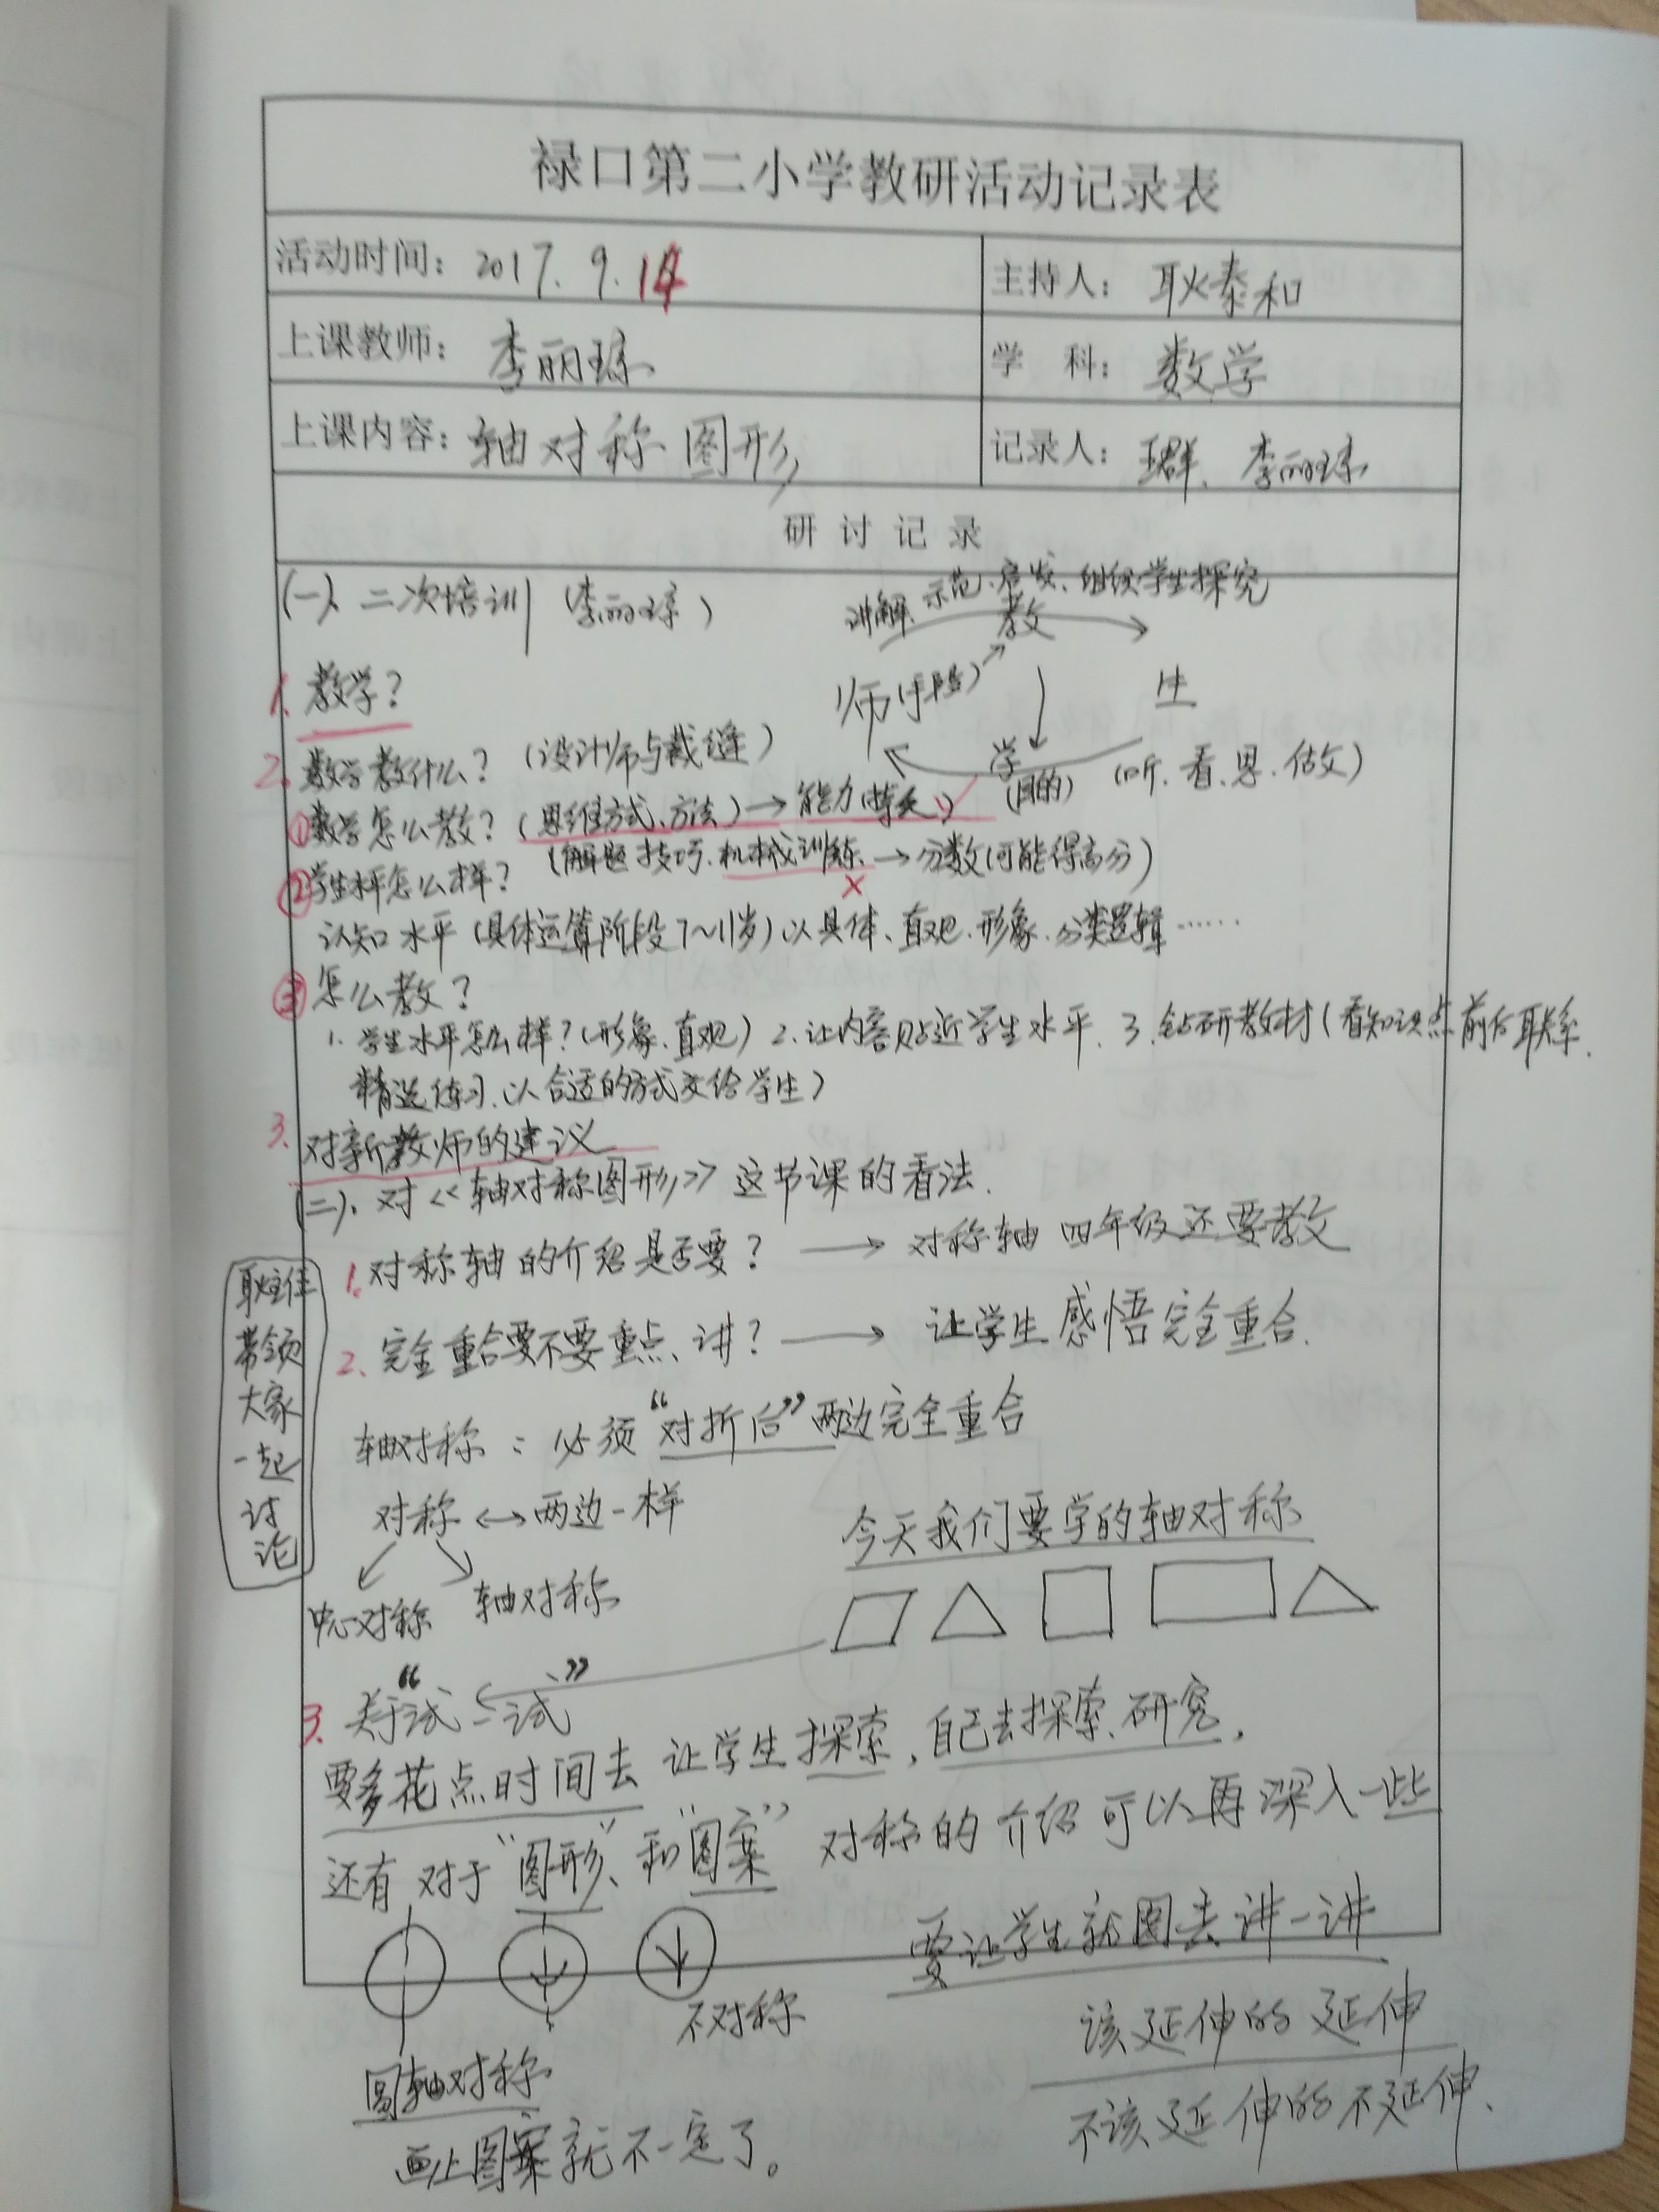 禄口第二小学教研活动记录表
活动时间：2017.9.14
主持人：耿泰和
上课教师：李丽琼
学 科：数学
上课内容：轴对称图形
记录人：李丽琼
研讨记录
(一)、二次培训（李丽琼）
讲解、示范、启发、组织学生探究
教
师(手段)
生
学
(目的)
(听、看、思、做)
1. 教学?
2. 数学教什么?（设计师与裁缝）
①数学怎么教?（思维方式、方法）→能力 ✓
（解题技巧、机械训练→分数(可能得高分)
×
②学生水平怎么样?
认知水平（具体运算阶段7~11岁）以具体、直观、形象、分类逻辑……
③怎么教?
1. 学生水平怎么样?(形象、直观) 2. 让内容贴近学生水平、3. 钻研教材(看知识点前后联系、
精选练习、以合适的方式交给学生)
3. 对新教师的建议
(二)、对《轴对称图形》这节课的看法.
耿主任
带领
大家
一起
讨
论
1. 对称轴的介绍是否要? → 对称轴四年级还要教
2. 完全重合要不要重点讲? → 让学生感悟完全重合.
轴对称：必须“对折后”两边完全重合
对称↔两边一样
中心对称 轴对称
今天我们要学的轴对称
3. 关于“试一试”
要多花点时间去让学生探索，自己去探索、研究,
还有对于“图形”和“图案”对称的介绍可以再深入一些
要让学生就图去讲一讲
不对称
该延伸的延伸
圆轴对称
不该延伸的不延伸、
画上图案就不一定了。